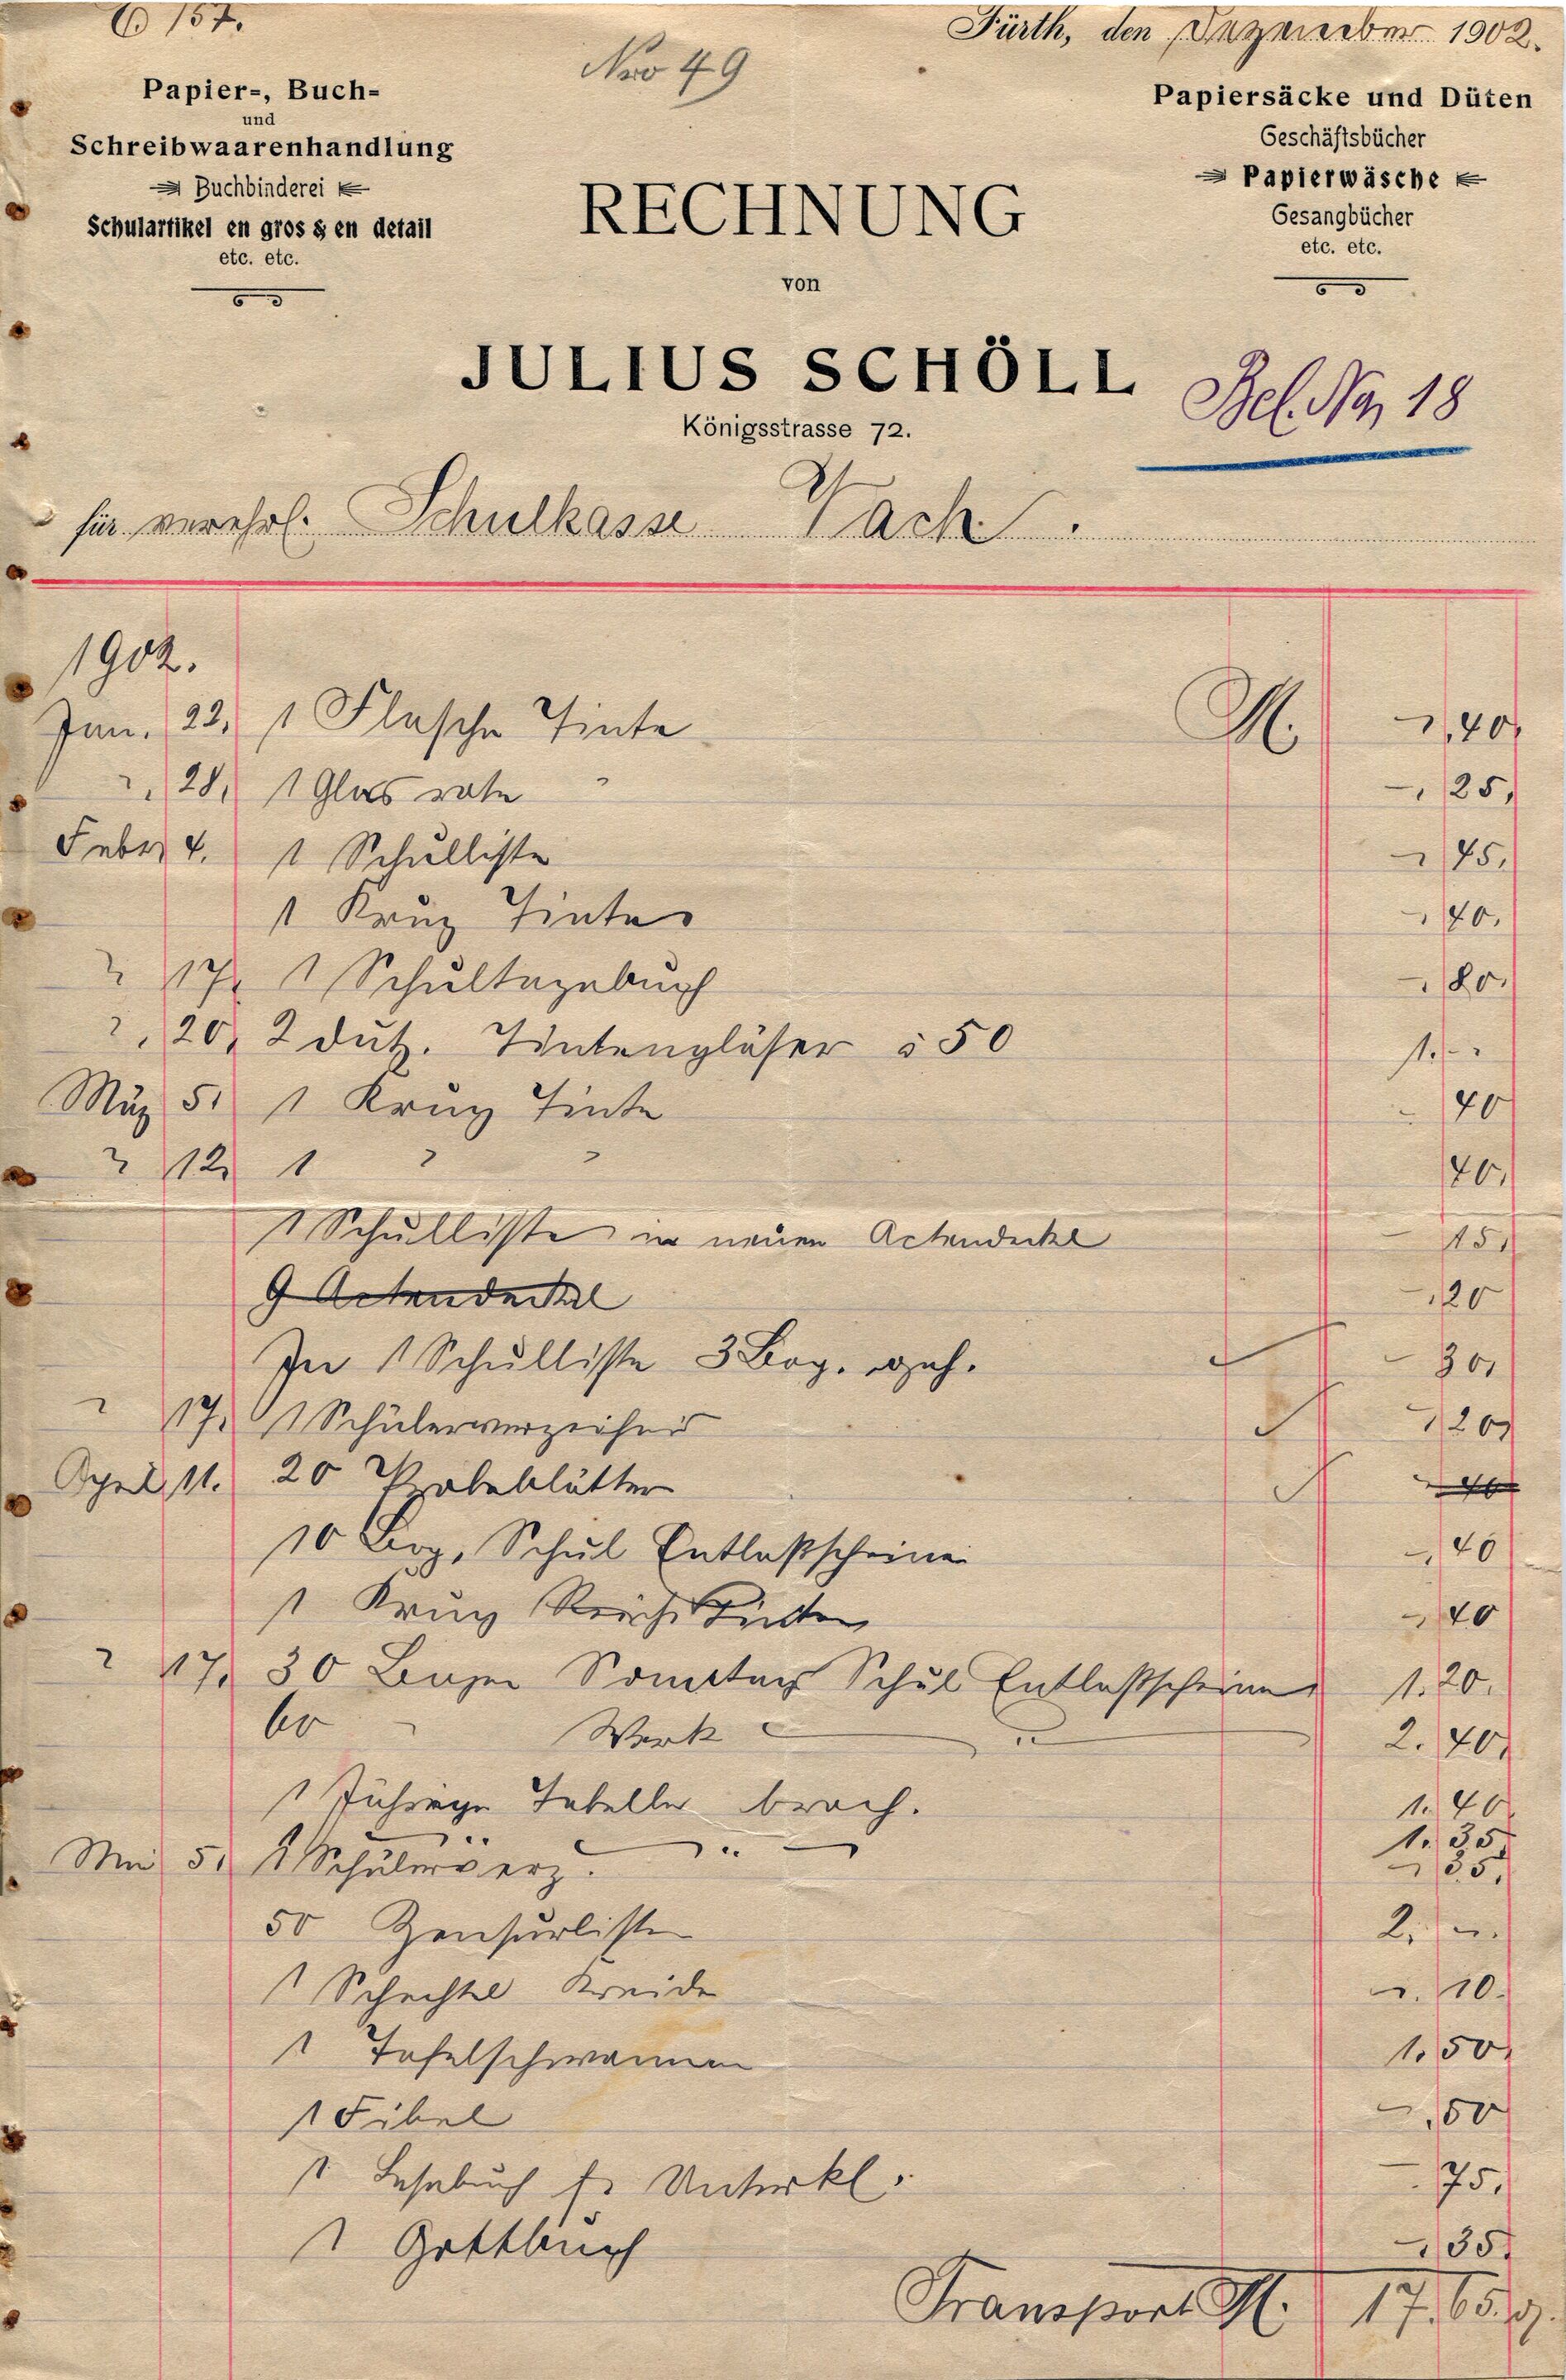 157.
Nro 49
Fürth, den Dezember 1902.
Papier-, Buch-
und
Schreibwaarenhandlung
Buchbinderei
Schulartikel en gros & en detail
etc. etc.
Papiersäcke und Düten
Geschäftsbücher
Papierwäsche
Gesangbücher
etc. etc.
RECHNUNG
von
JULIUS SCHÖLL
Königsstrasse 72.
Bel. No 18
für verehrl. Schulkasse Vach.
1902.
Jan. 22, 1 Flasche Tinte M. -,40,
" 28, 1 Glas rote " -,25,
Febr. 4. 1 Schulliste -,45,
1 Krug Tinte -,40,
" 17, 1 Schultagebuch -,80,
" 20, 2 dutz. Tintengläser à 50 1.--
März 5, 1 Krug Tinte -,40
" 12, 1 " " 40,
1 Schulliste in neuen Actendeckel -,15,
9 Actendeckel -,20
In 1 Schulliste 3 Bog. geh. - 30,
" 17, 1 Schülerverzeichnis 1,20,
April 11. 20 Probeblätter 40
10 Bog. Schul Entlaßscheine -,40
1 Krug Tinte -,40
" 17, 30 Bogen Sonntags Schul Entlaßscheine 1.20.
60 " Werk " 2.40,
1 Tabelle broch. 1.40
1.35,
Mai 5, 1 Schülerverz. " -,35,
50 Zensurliste 2,--
1 Schachtel Kreide -.10.
1 Tafelschwamm 1.50,
1 Fibel -,50
1 Lesebuch f. Unterkl. -.75,
1 -,35,
Transport M. 17,65